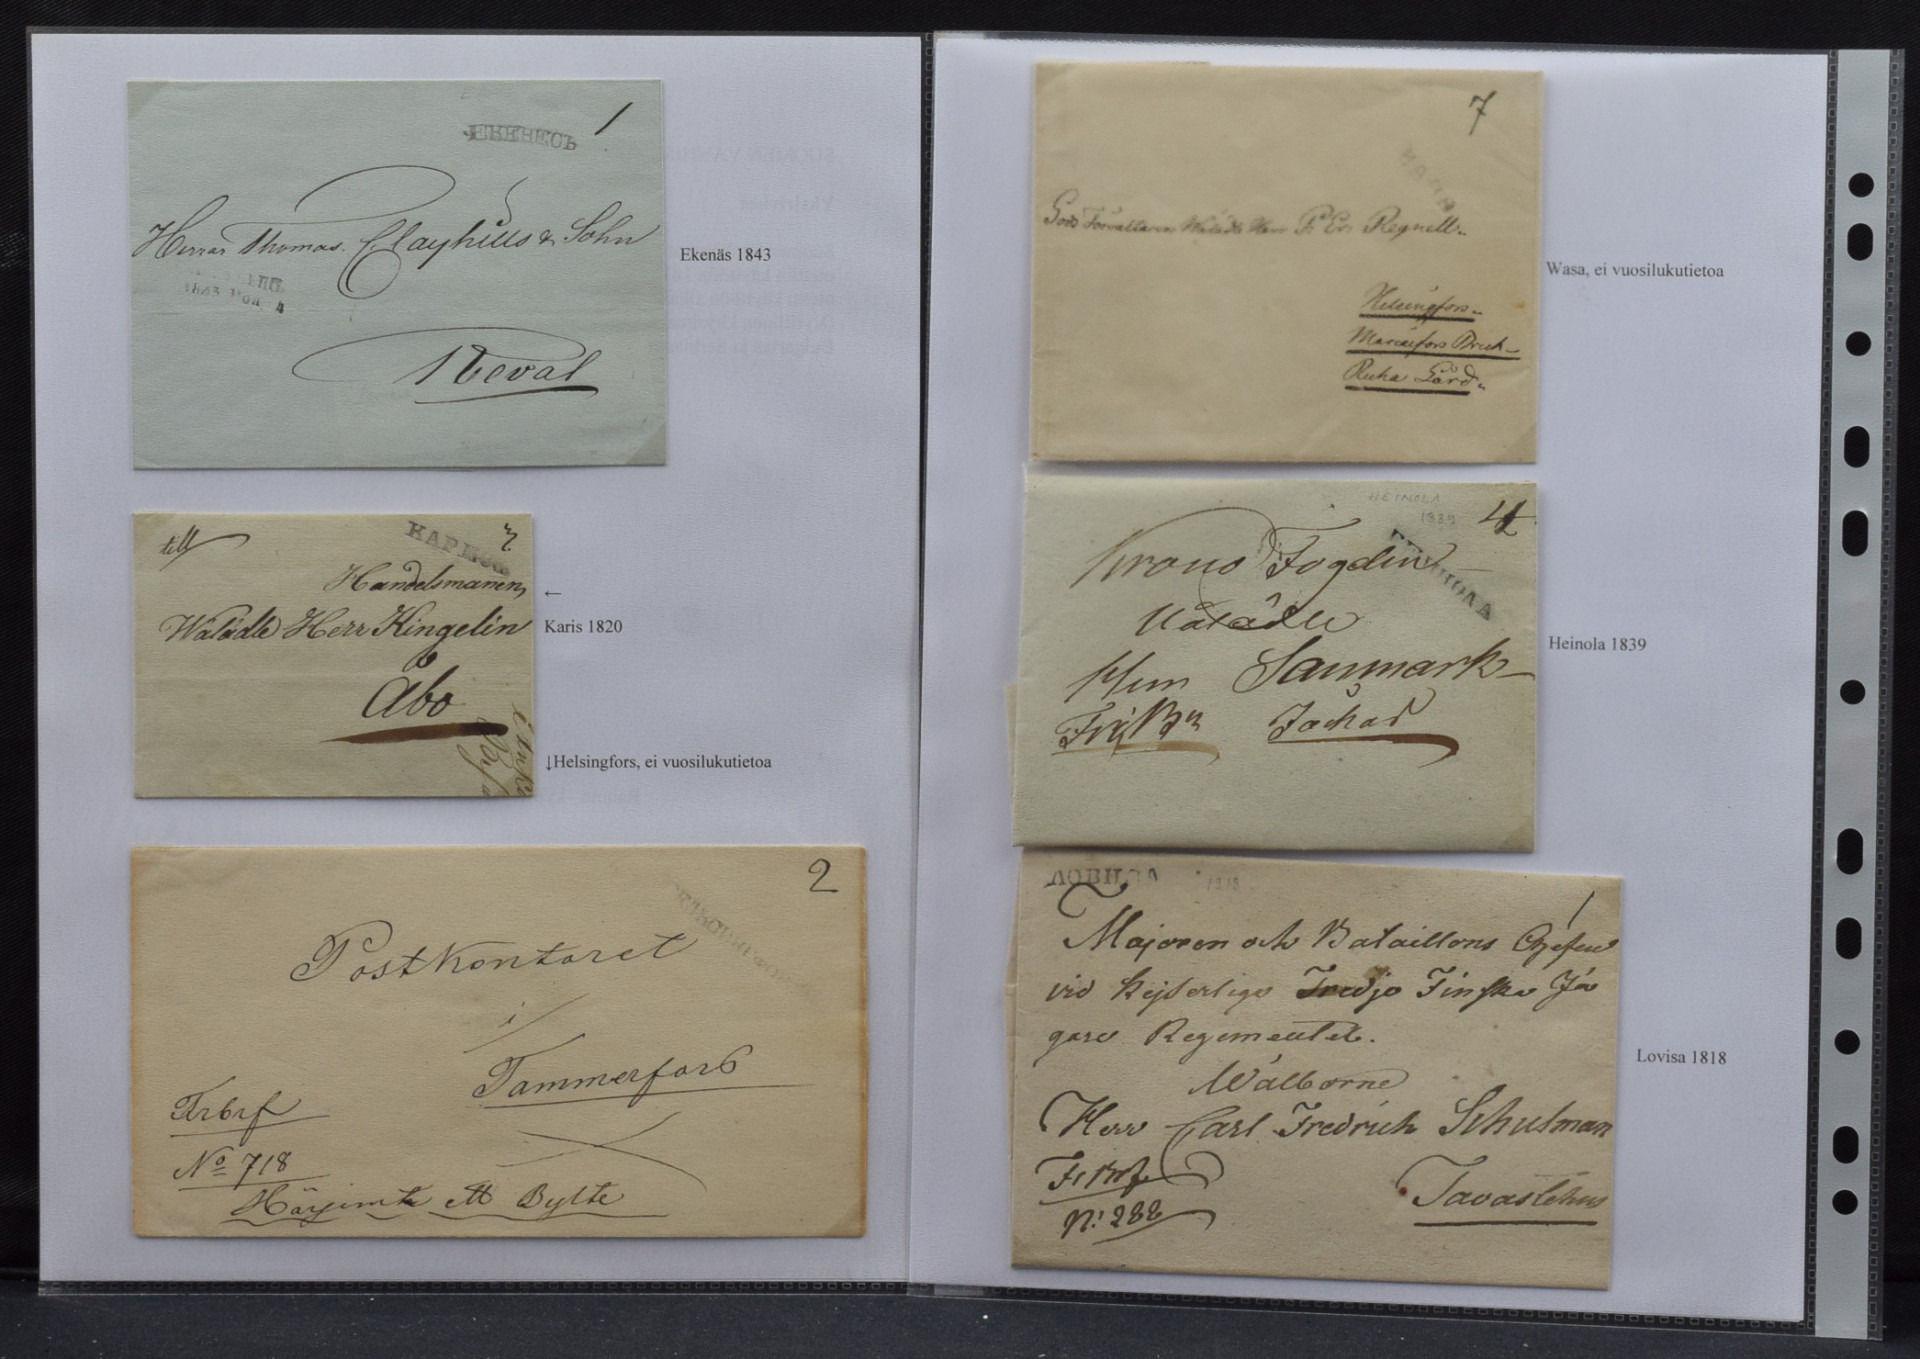 ЕКЕНЕСЪ
1
Herrar Thomas Clayhills & Sohn
1843
4
Reval
Ekenäs 1843
till
КАРИСЪ
Handelsmannen
Wälädle Herr Kingelin
Åbo
←
Karis 1820
↓Helsingfors, ei vuosilukutietoa
2
Postkontoret
i
Tammerfors
Frbrf
No 718
Härjemte ett Bylte
7
ВАЗА
Regnell
Helsingfors
Gård
Wasa, ei vuosilukutietoa
HEINOLA
1839
4
Krono Fogden
Wälädle
Herr Sanmark
Jockas
Heinola 1839
ЛОВИСА
1818
1
Majoren och Bataillons Chefen
vid Kejserliga Tredje Finska Jä
gare Regementet.
Wälborne
Herr Carl Fredrich Schulman
Frbrf
N: 288
Tavastehus
Lovisa 1818